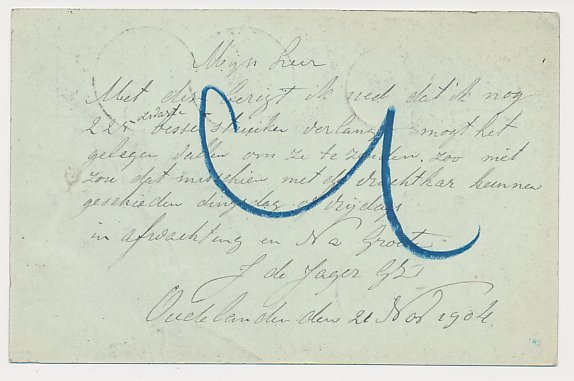 Mijn heer
Met dez berigt ik ued dat ik nog
225 zwarte bessestruiken verlang mogt het
gelegen vallen om ze te zenden, zoo niet
zou dat misschien met de vrachtkar kunnen
geschieden dingsdag of vrijdag
in afwachting en Na Groet
J de Jager Gz
Oudelanden den 21 Nov 1904